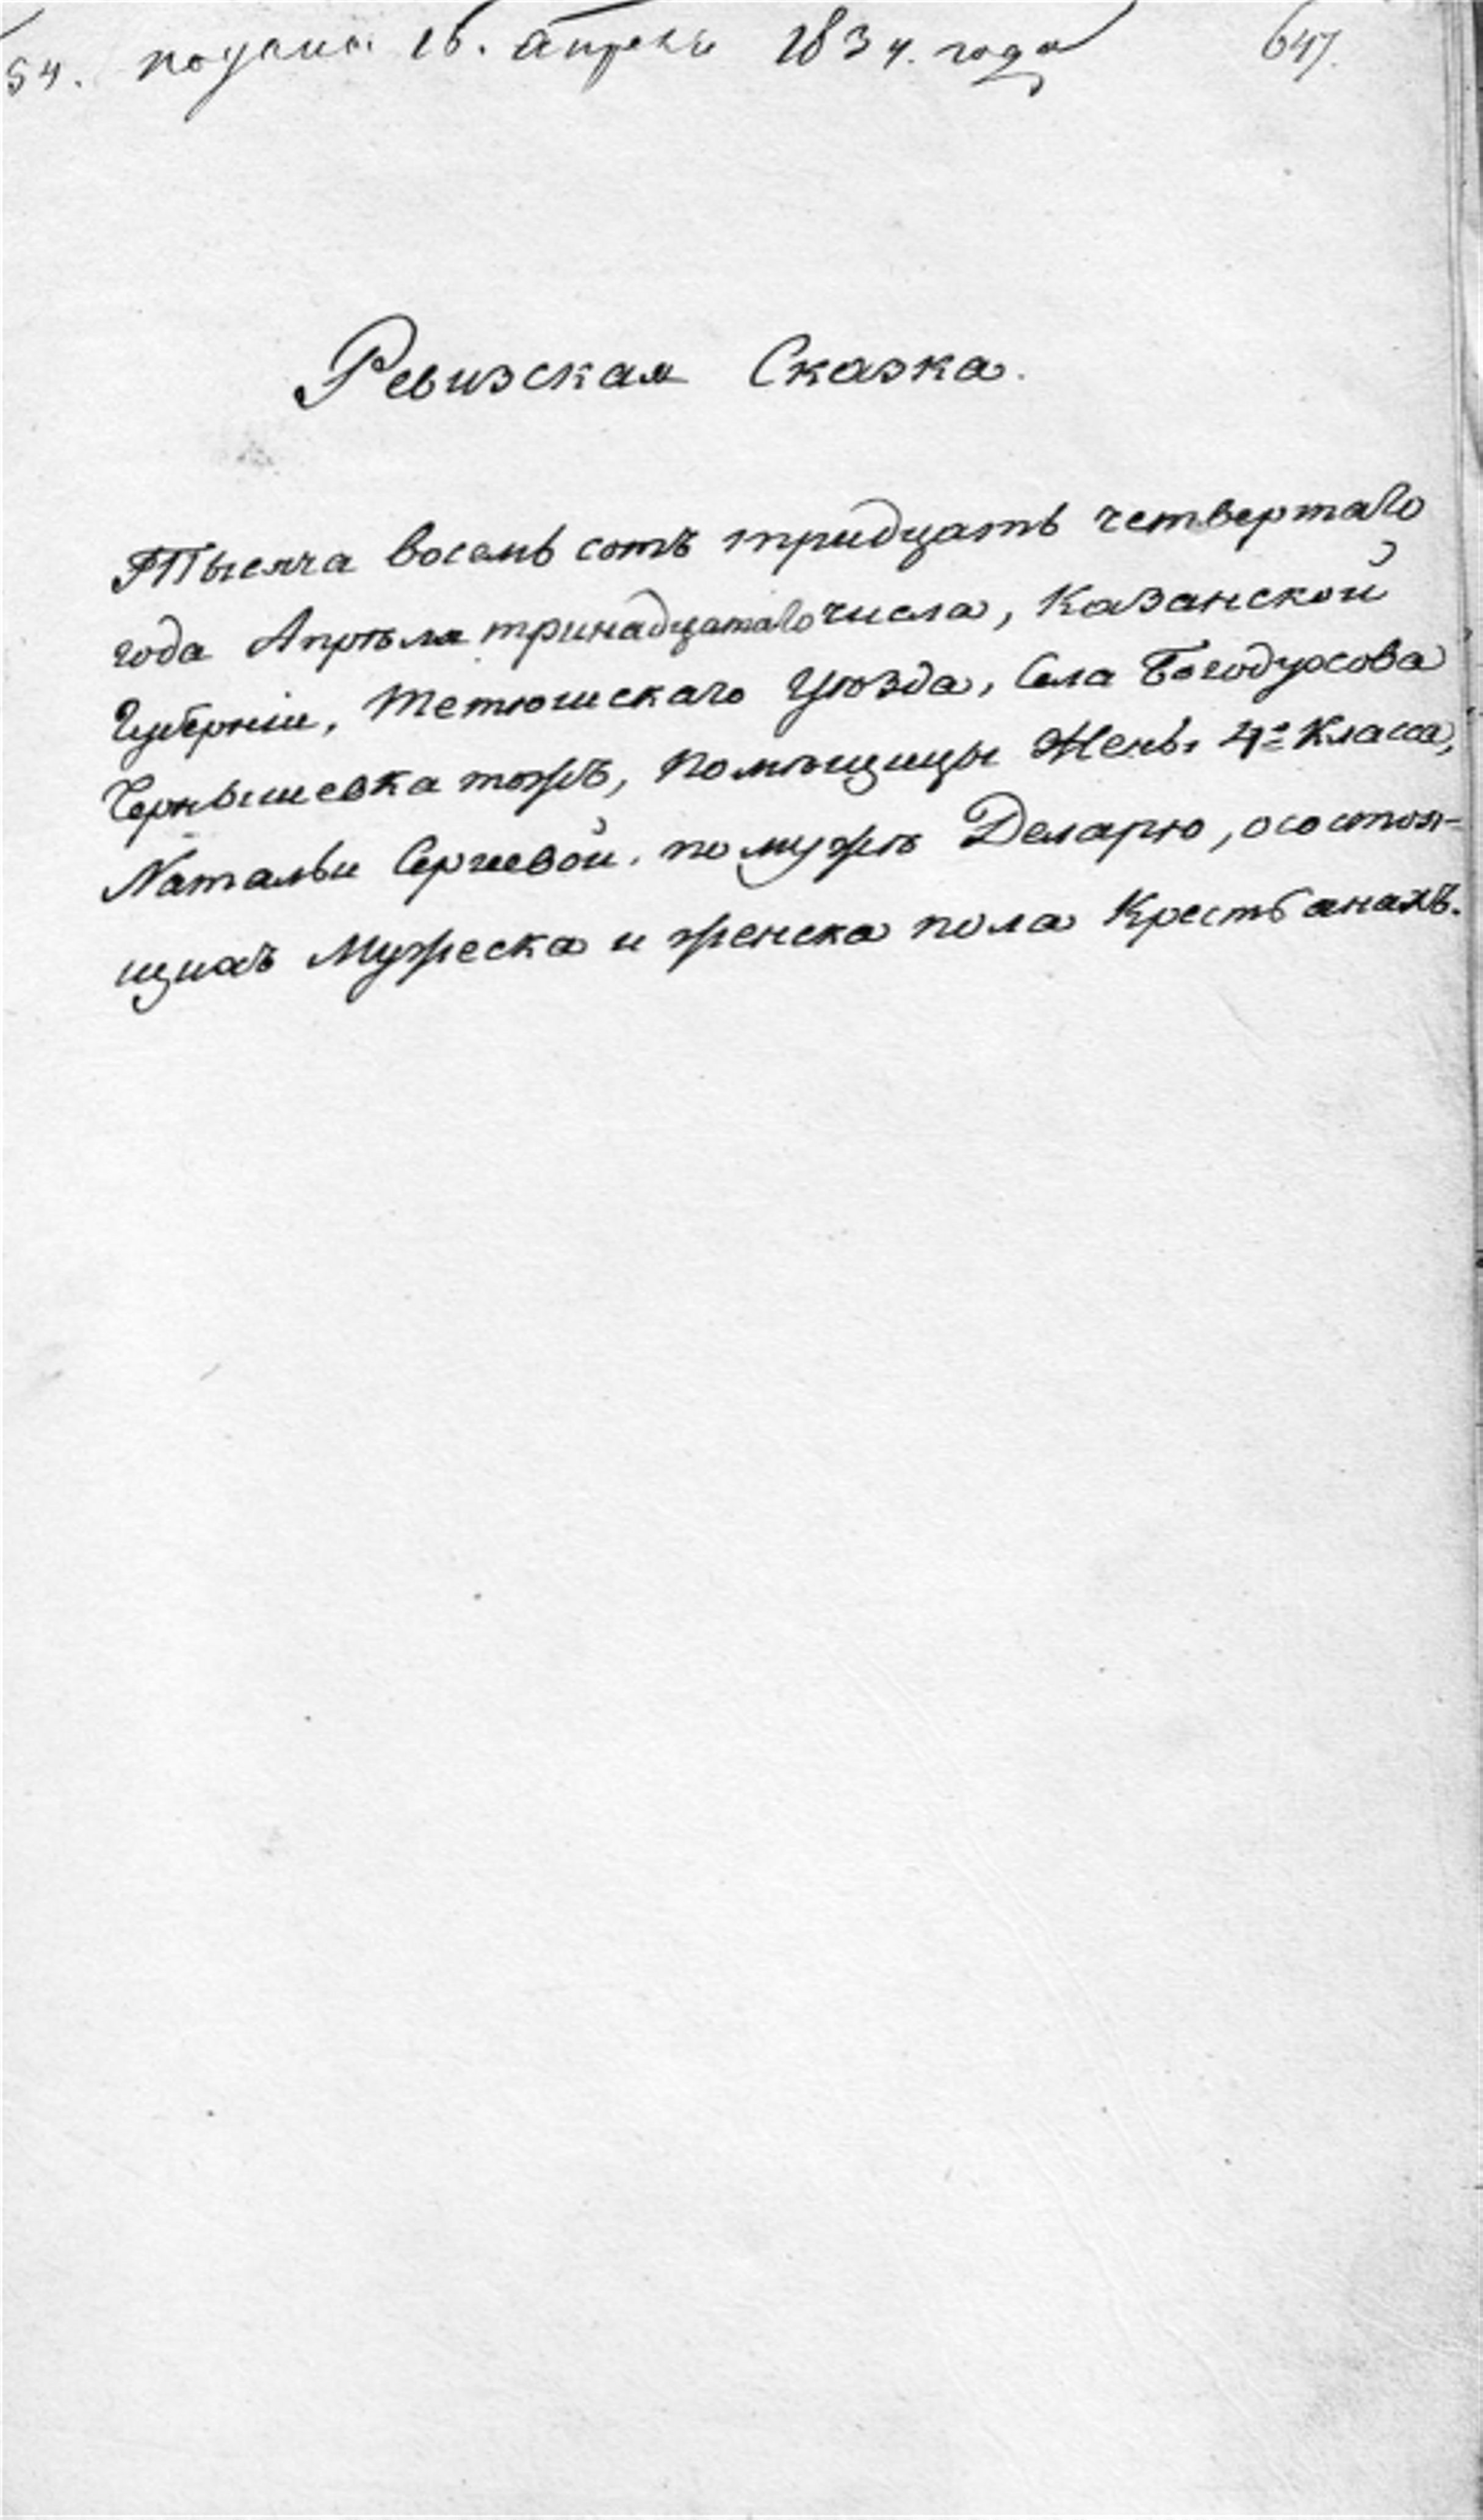 54. подана 16. апреля 1834. года 647.
Ревизская Сказка.
Тысяча восемь сотъ тридцать четвертаго
года Апрѣля тринадцатаго числа, Казанской
Губерніи, Тетюшскаго Уѣзда, Села Богодухова
Чернышевка тожъ, Помѣщицы Жены 4го Класса,
Натальи Сергиевой. по мужѣ Деларю, о состоя-
щихъ Мужеска и женска пола Крестьянахъ.